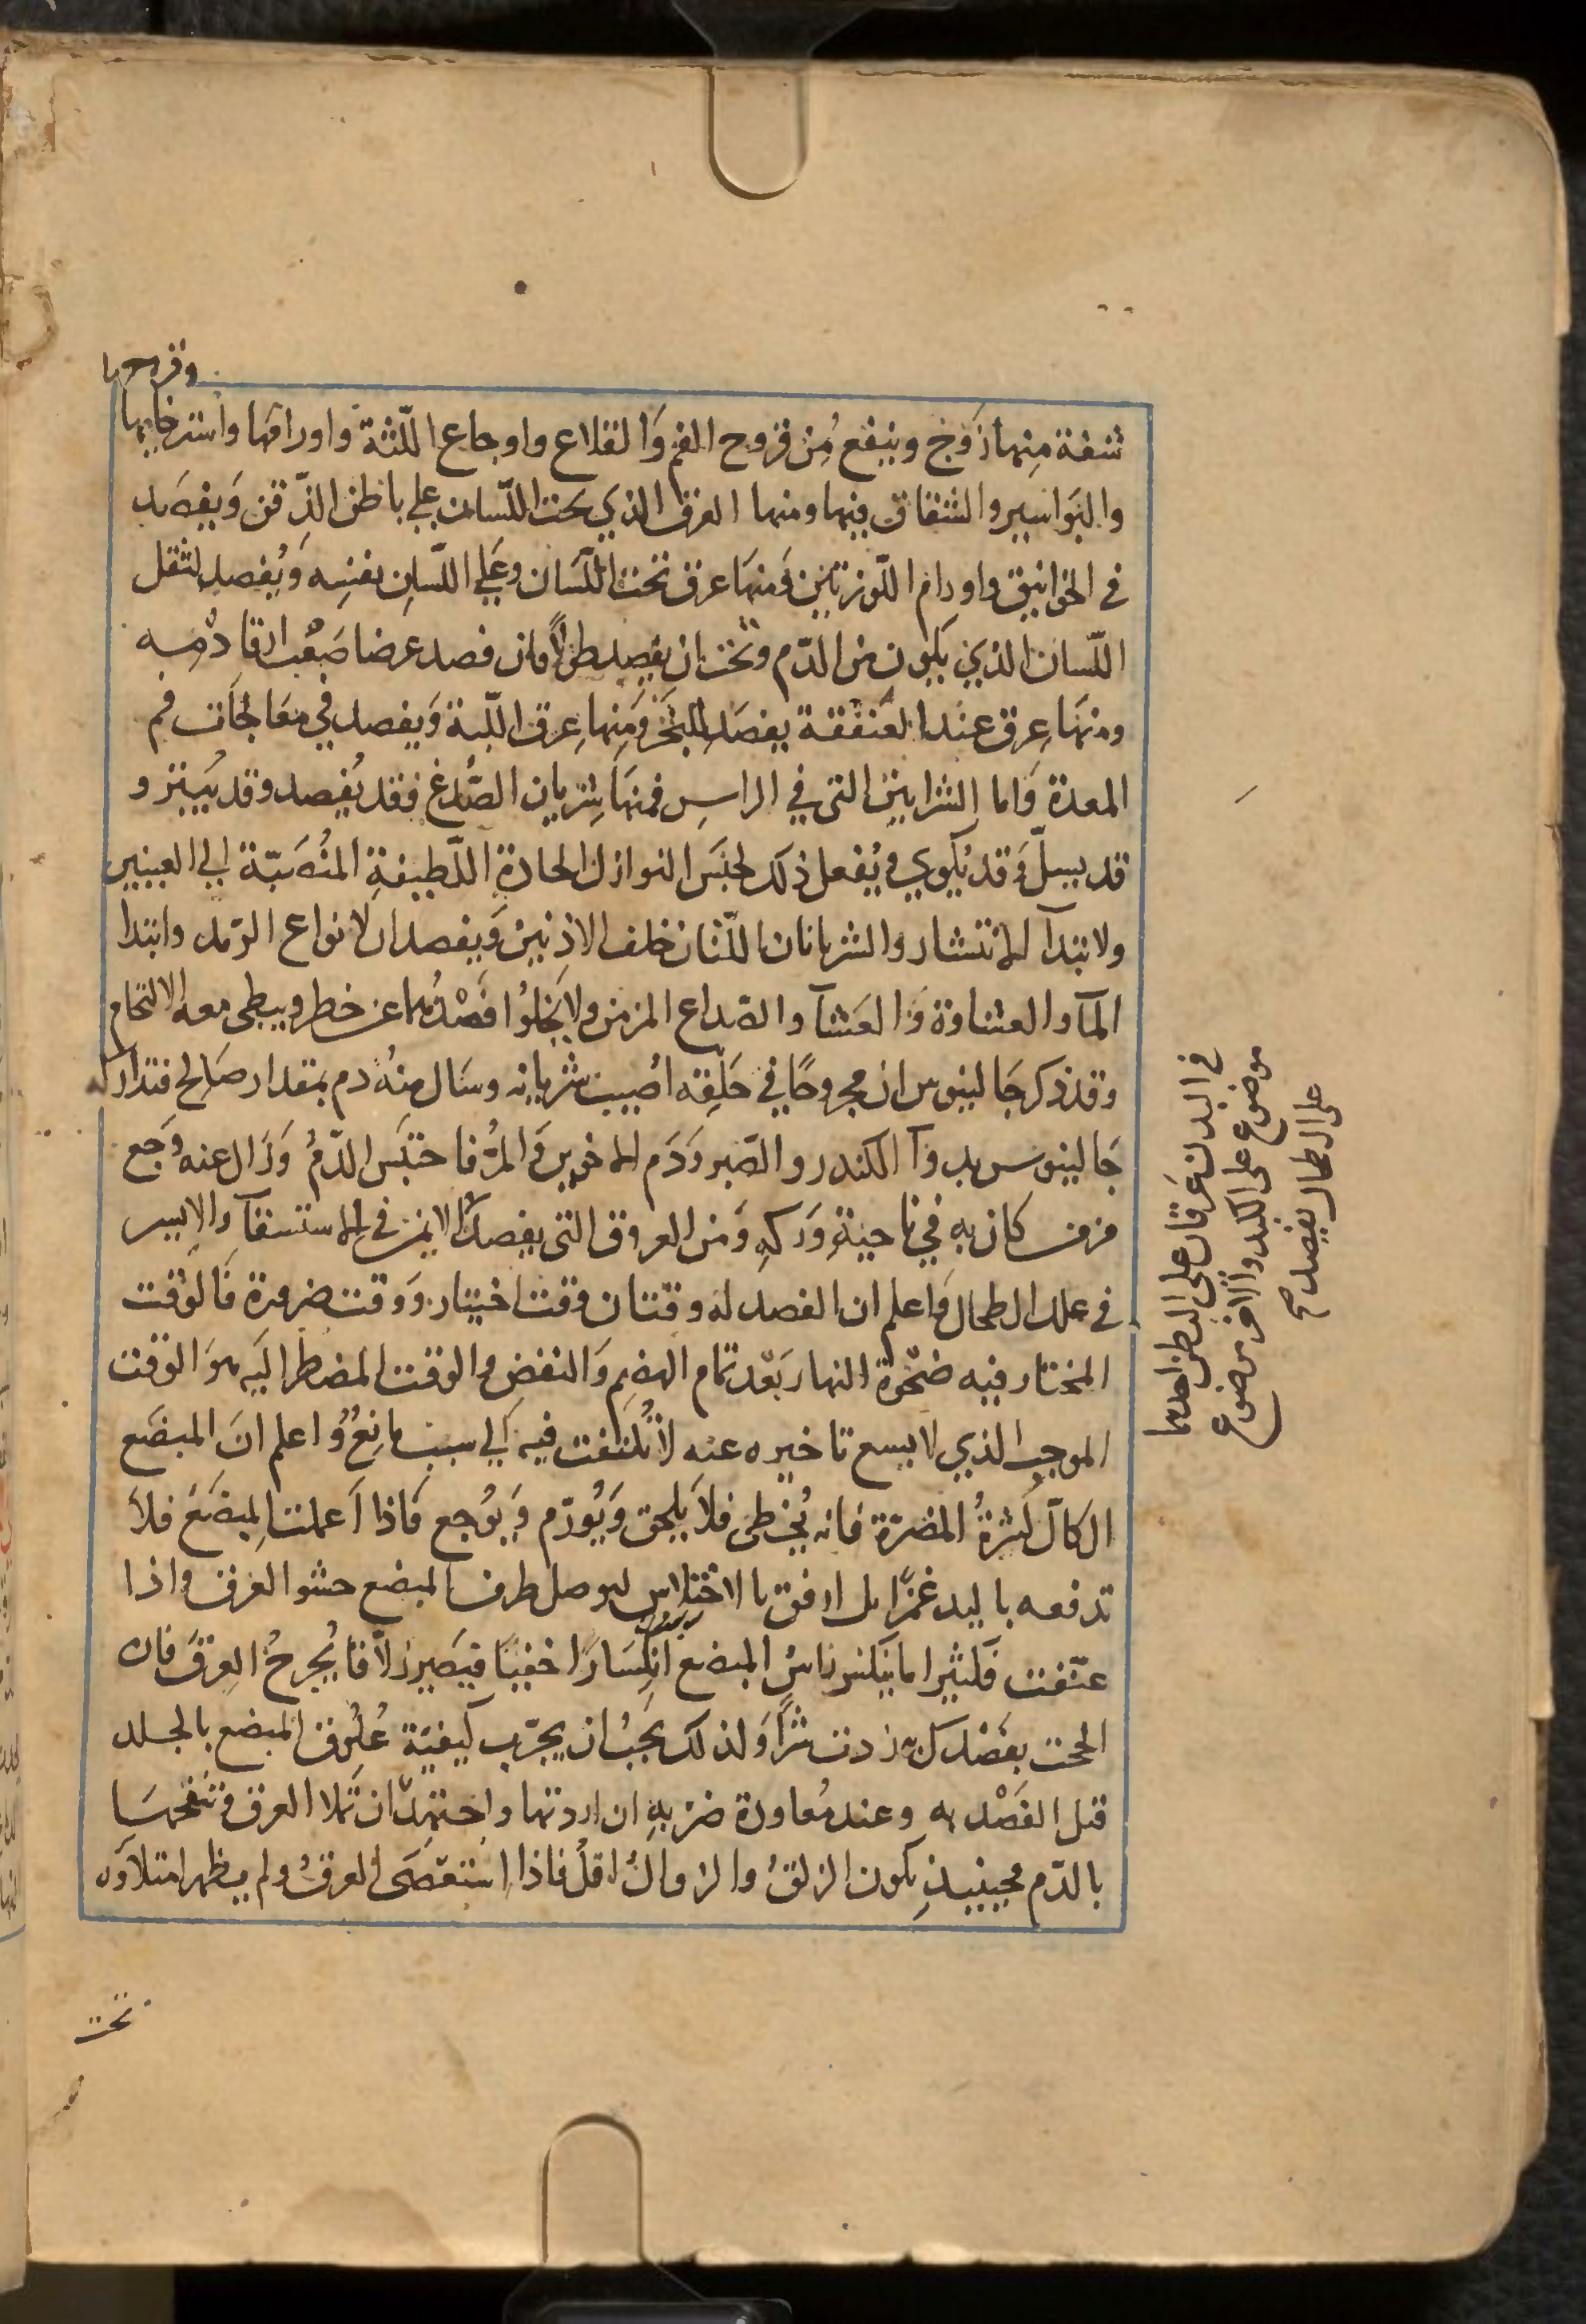 وقروحها
شفة منها زوج وينفع من قروح الفم والقلاع واوجاع اللّثة واورامها واسترخايها
والبواسير والشقاق فيها ومنها العرق الذي تحت اللّسان علي باطن الذّقن ويفصد
في الخوانيق واورام اللّوزتين ومنها عرق تحت اللّسان وعلي اللّسان نفسه ويُفصد لثقل
اللّسان الذي يكون من الدّم ويجب ان يفصد طولاً فان فصد عرضا صَعُب ارقا دمه
ومنها عرق عند العنفقة يفصد للبخر ومنها عرق اللّبة ويفصد في معالجات فم
المعدة واما الشرايين التي في الراس فمنها شريان الصُّدغ فقد يُفصد وقد يُبتر و
قد يسلّ وقد يُكوي ويُفعل ذلك لحبس النوازل الحادة اللّطيفة المنصبّة الي العينين
ولابتدآ الانتشار والشريانان اللّتان خلف الاذنين ويفصدان لانواع الرّمد وابتدا
المآ والغشاوة والعشآ والصّداع المزمن ولا يخلوا فصدُهما عن خطر ويبطى معه الالتحام
وقد ذكر جالينوس ان مجروحًا في حلقه اصيب شريانه وسال منهُ دم بمقدار صالح فتداركه
جالينوس بدوآ الكندر والصّبر ودم الاخوين والمرّ فاحتبس الدّمُ وزال عنه وجع
مزمن كان به في ناحية وركه ومن العروق التي يفصد الايمن في الاستسقآ والايسر
في علل الطحال واعلم ان الفصد له وقتان وقت اختيار ووقت ضرورة فالوقت
المختار فيه ضحوة النهار بعد تمام الهضم والنفض والوقت المضطر اليه هو الوقت
الموجب الذي لا يسع تاخيره عنه لا يُلتفت فيه الي سبب مانعٍ واعلم ان المبضع
الكالّ كثرةُ المضرّة فانه يُخطى فلا يلحق ويُورّم ويُوجع فاذا اعملت المبضع فلا
تدفعه باليد غمزًا بل ارفق بالاختلاس ليوصل طرف المبضع حشو العرق واذا
عنّفت فكثيرا ما ينكسر راسُ المبضع انكسارًا خفيًا فيصير زلاّقا يُجرحُ العرقَ فان
الححت بفصدك به زدت شرًّا ولذلك يجبُ ان يجرّب كيفيّة عُلوق المبضع بالجلد
قبل الفصد به وعند مُعاودة ضربه ان اردتها واجتهد ان تملا العرق وتنفخها
بالدّم فحينيذٍ يكون الزلقُ والزوالُ اقلُ فاذا استعصى العرقُ ولم يظهر امتلاوه
تحت
في البدن عرقان على البطن احدهما
موضوع على الكبد والآخر موضوع
على الطحال يفصد صح